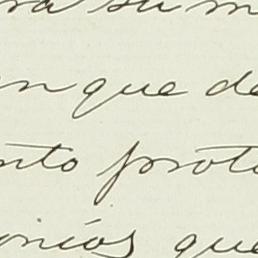 ra su m
n que de
nto proto
onios que